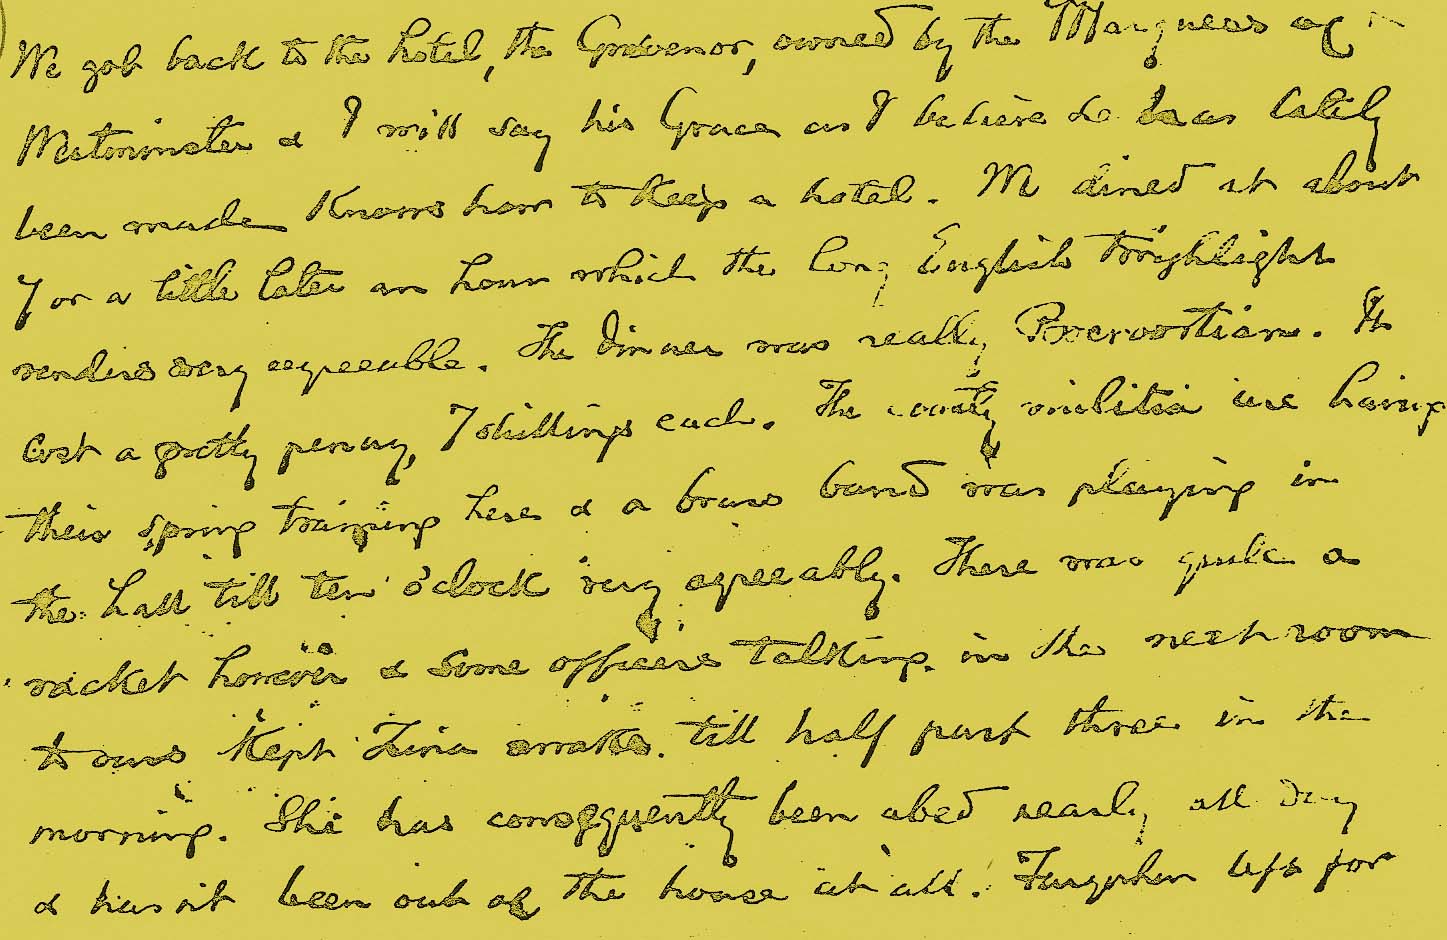 We got back to the hotel, the Grosvenor, owned by the Marquess of
Westminster & I will say his Grace as I believe he has lately
been made knows how to keep a hotel. We dined at about
7 or a little later an hour which the long English twighlight
renders very agreeable. The dinner was really It
cost a pretty penny, 7 shillings each. The county militia are having
their spring training here & a brass band was playing in
the hall till ten o'clock very agreeably. There was quite a
racket however & some officers talking in the next room
to ours kept Lina awake till half past three in the
morning. She has consequently been abed nearly all day
& hasn't been out of the house at all. left for